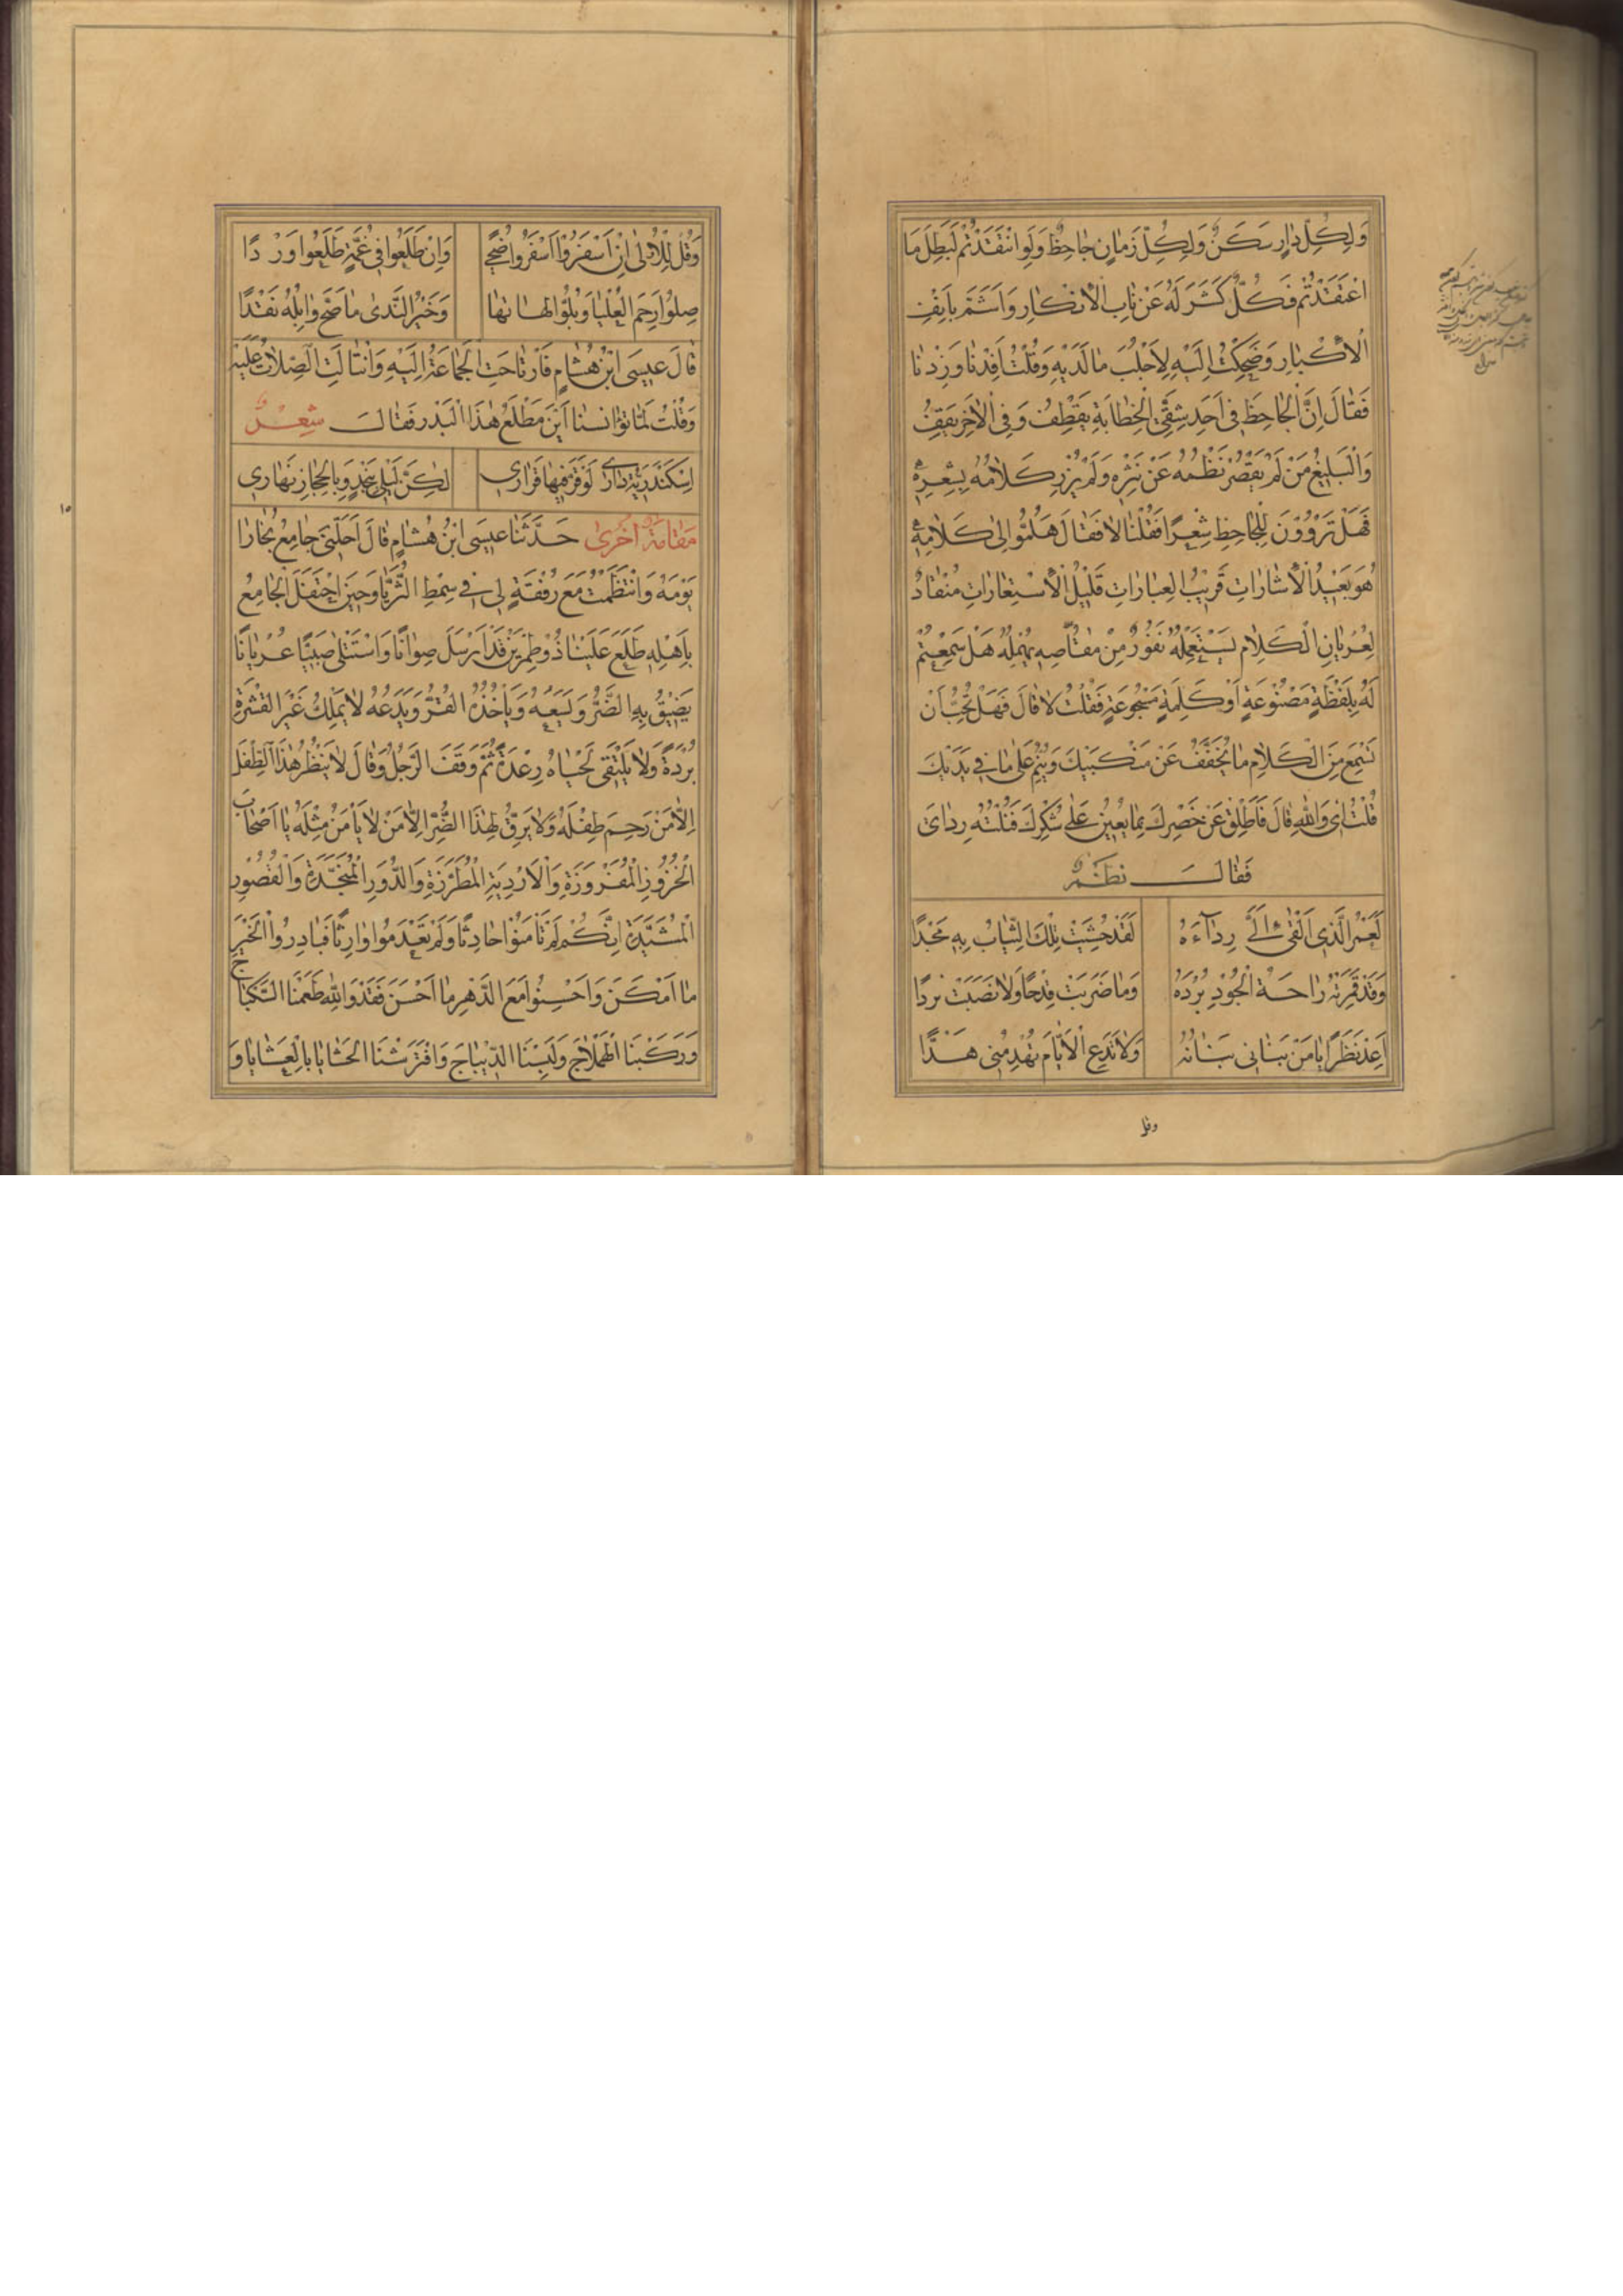 وَلِكُلِّ دَارٍ سَكَنٌ وَلِكُلِّ زَمَانٍ جَاحِظٌ وَلَوِ انْتَقَدْتُمْ لَبَطَلَ مَا
اعْتَقَدْتُمْ فَكُلٌّ كَشَرَ لَهُ عَنْ نَابِ الْاِنْكَارِ وَاَشَمَّ بِاَنْفِ
الْاِكْبَارِ وَضَحِكْتُ اِلَيْهِ لِاَجْلُبَ مَا لَدَيْهِ وَقُلْتُ اَفِدْنَا وَزِدْنَا
فَقَالَ اِنَّ الْجَاحِظَ فِي اَحَدِ شِقَّيِ الْخِطَابَةِ يَقْطِفُ وَفِي الْاٰخَرِ يَقِفُ
وَالْبَلِيغُ مَنْ لَمْ يُقَصِّرْ نَظْمُهُ عَنْ نَثْرِهِ وَلَمْ يُزْرِ كَلَامُهُ بِشِعْرِهِ
فَهَلْ تَرْوُوْنَ لِلْجَاحِظِ شِعْرًا فَقُلْنَا لَا فَقَالَ هَلُمُّوا اِلٰى كَلَامِهِ
هُوَ بَعِيْدُ الْاِشَارَاتِ قَرِيْبُ الْعِبَارَاتِ قَلِيْلُ الْاِسْتِعَارَاتِ مُنْقَادٌ
لِعُرْيَانِ الْكَلَامِ يَسْتَعْمِلُهُ نَفُوْرٌ مِنْ مُعْتَاصِهِ يُهْمِلُهُ هَلْ سَمِعْتُمْ
لَهُ بِلَفْظَةٍ مَصْنُوْعَةٍ اَوْ كَلِمَةٍ مَسْجُوْعَةٍ فَقُلْتُ لَا قَالَ فَهَلْ تُحِبُّ اَنْ
تَسْمَعَ مِنَ الْكَلَامِ مَا يُخَفِّفُ عَنْ مَنْكِبَيْكَ وَيَنُمُّ عَلٰى مَا فِي يَدَيْكَ
قُلْتُ اِى وَاللهِ قَالَ فَاَطْلِقْ عَنْ خَصْرِكَ بِمَا يُعِيْنُ عَلٰى شُكْرِكَ فَنُلْتُهُ رِدَاىَ
فَقَالَ نَظْمٌ
لَعَمْرُ الَّذِى اَلْقٰى اِلَىَّ رِدَآءَهُ لَقَدْ حُشِيَتْ تِلْكَ الثِّيَابُ بِهِ مَجْدًا
وَقَدْ قَمَرَتْهُ رَاحَةُ الْجُوْدِ بُرْدَهُ وَمَا ضَرَبَتْ قِدْحًا وَلَا نَصَبَتْ نَرْدًا
اَعِدْ نَظَرًا يَا مَنْ حَبَانِى ثِيَابَهُ وَلَا تَدَعِ الْاَيَّامَ تَهْدِمُنِى هَدًّا
وقل
وَقُلْ لِلْاُولٰى اِنْ اَسْفَرُوْا اَسْفَرُوا ضُحًى وَاِنْ طَلَعُوا فِي غُمَّةٍ طَلَعُوا وَرْدًا
صِلُوا رَحِمَ الْعُلْيَا وَبُلُّوا لَهَاتَهَا وَخَيْرُ النَّدٰى مَا سَحَّ وَابِلُهُ نَقْدًا
قَالَ عِيسَى ابْنُ هِشَامٍ فَارْتَاحَتِ الْجَمَاعَةُ اِلَيْهِ وَانْثَالَتِ الصِّلَاتُ عَلَيْهِ
وَقُلْتُ لَمَّا تَوَانَسْنَا اَيْنَ مَطْلَعُ هٰذَا الْبَدْرِ فَقَالَ شِعْرٌ
اِسْكَنْدَرِيَّةُ دَارِى لَوْ قَرَّ فِيْهَا قَرَارِى لٰكِنَّ لَيْلِى بِنَجْدٍ وَبِالْحِجَازِ نَهَارِى
مَقَامَةٌ اُخْرٰى حَدَّثَنَا عِيسَى ابْنُ هِشَامٍ قَالَ اَحَلَّنِى جَامِعَ بُخَارَا
يَوْمَهُ وَانْتَظَمْتُ مَعَ رُفْقَةٍ لِى فِي سِمْطِ الثُّرَيَّا وَحِيْنَ احْتَفَلَ الْجَامِعُ
بِاَهْلِهِ طَلَعَ عَلَيْنَا ذُوْ طِمْرَيْنِ قَدْ اَرْسَلَ صِوَانًا وَاسْتَتْلٰى صَبِيًّا عُرْيَانًا
يَضِيْقُ بِهِ الضُّرُّ وَيَسَعُهُ وَيَاْخُذُهُ الْقُرُّ وَيَدَعُهُ لَا يَمْلِكُ غَيْرَ الْقِشْرَةِ
بُرْدَةً وَلَا يَلْتَقِى لَحْيَاهُ رِعْدَةً ثُمَّ وَقَفَ الرَّجُلُ وَقَالَ لَا يَنْظُرُ هٰذَا الطِّفْلَ
اِلَّا مَنْ رَحِمَ طِفْلَهُ وَلَا يَرِقُّ لِهٰذَا الضُّرِّ اِلَّا مَنْ لَا يَاْمَنُ مِثْلَهُ يَا اَصْحَابَ
الْخُزُوْزِ الْمَفْرُوْزَةِ وَالْاَرْدِيَةِ الْمُطَرَّزَةِ وَالدُّوْرِ الْمُنَجَّدَةِ وَالْقُصُوْرِ
الْمُشَيَّدَةِ اِنَّكُمْ لَمْ تَاْمَنُوْا حَادِثًا وَلَمْ تَعْدَمُوا وَارِثًا فَبَادِرُوا الْخَيْرَ
مَا اَمْكَنَ وَاَحْسِنُوا مَعَ الدَّهْرِ مَا اَحْسَنَ فَقَدْ وَاللهِ طَعِمْنَا السِّكْبَاجَ
وَرَكِبْنَا الْهِمْلَاجَ وَلَبِسْنَا الدِّيْبَاجَ وَافْتَرَشْنَا الْحَشَايَا بِالْعَشَايَا وَ
١٥